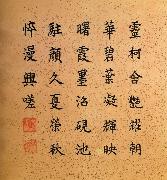 靈柯含艷發朝
華碧葉凝輝映
曙霞墨沼硯池
駐顏久夏榮秋
悴漫興嗟